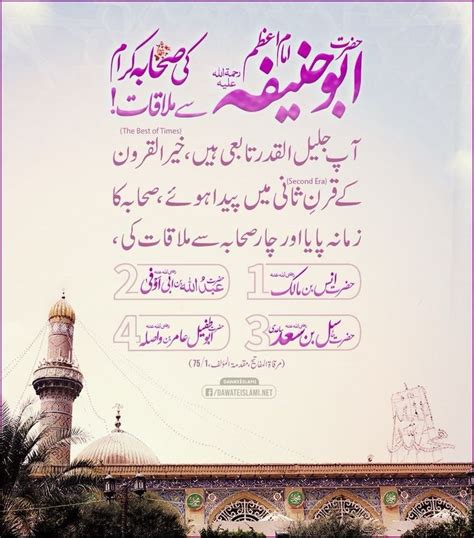 حضرت امام اعظم ابو حنیفہ رحمۃ اللہ علیہ کی صحابہ کرام
سے ملاقات!
(The Best of Times)
آپ جلیل القدر تابعی ہیں، خیر القرون
(Second Era)
کے قرنِ ثانی میں پیدا ہوئے، صحابہ کا
زمانہ پایا اور چار صحابہ سے ملاقات کی،
1 حضرت انس بن مالک رضی اللہ عنہ
2 حضرت عبد اللہ بن ابی اوفی رضی اللہ عنہ
3 حضرت سہل بن سعد ساعدی رضی اللہ عنہ
4 حضرت ابو طفیل عامر بن واصلہ رضی اللہ عنہ
(مرقاۃ المفاتیح، مقدمۃ المؤلف، 75/1)
DAWATEISLAMI
/DAWATEISLAMI.NET